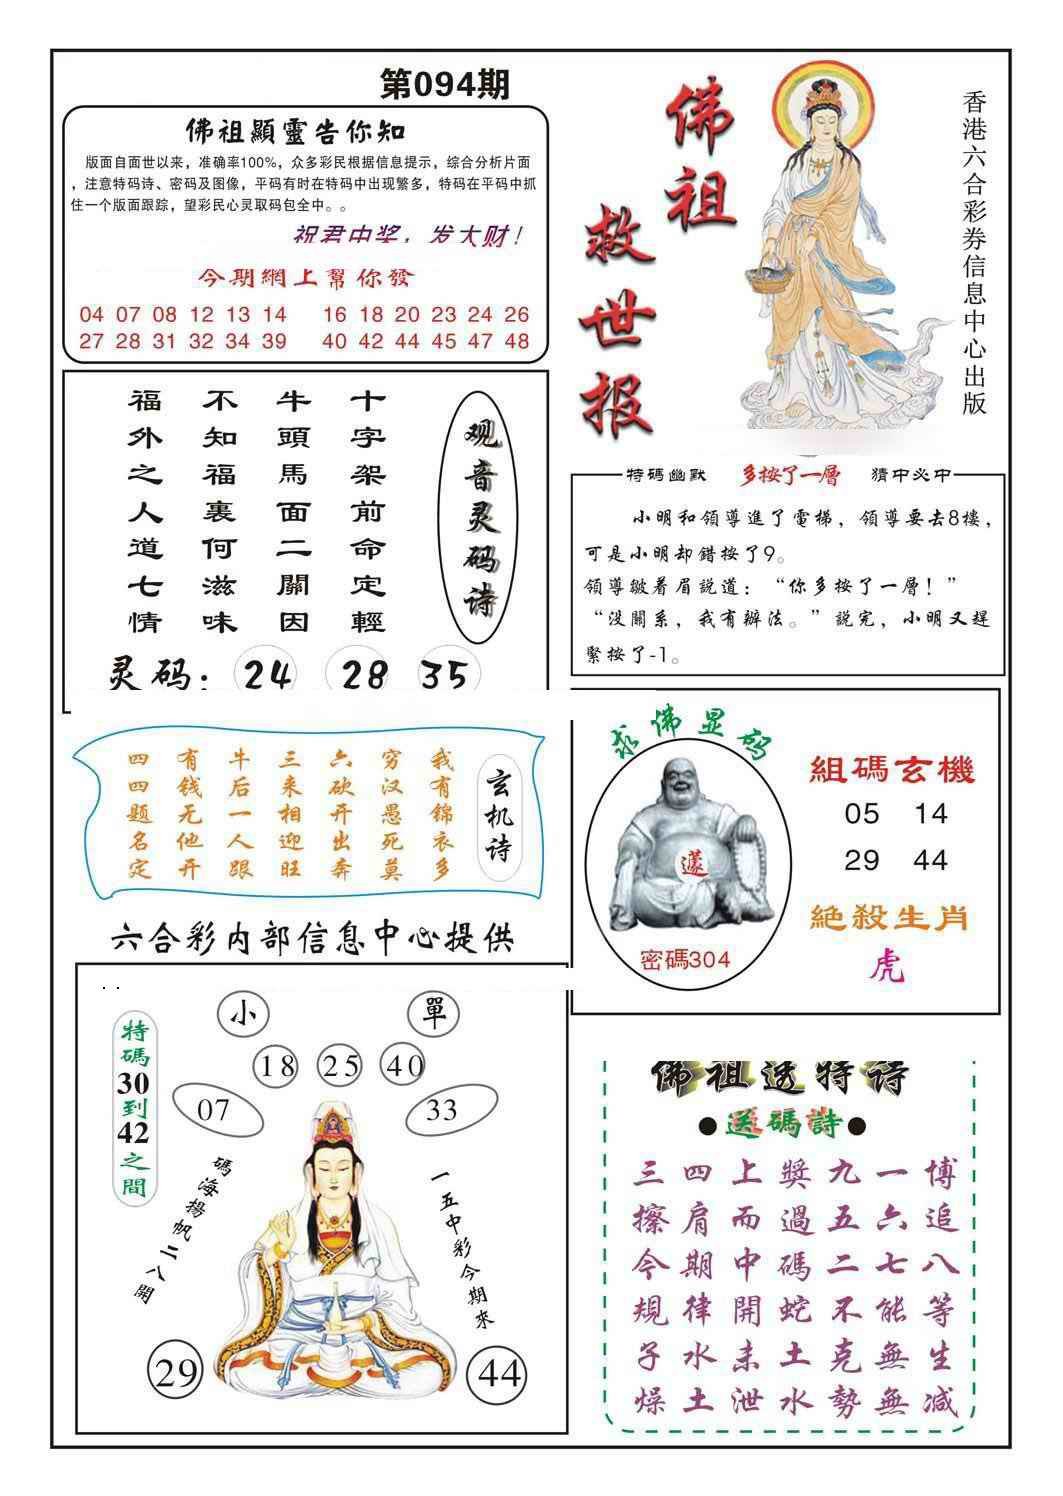 第094期
佛祖顯靈告你知
版面自面世以来，准确率100%，众多彩民根据信息提示，综合分析片面
，注意特码诗、密码及图像，平码有时在特码中出现繁多，特码在平码中抓
住一个版面跟踪，望彩民心灵取码包全中。。
祝君中奖，发大财！
今期網上幫你發
04 07 08 12 13 14 16 18 20 23 24 26
27 28 31 32 34 39 40 42 44 45 47 48
佛祖
救世报
香港六合彩券信息中心出版
观音灵码诗
十字架前命定輕
牛頭馬面二關因
不知福裏何滋味
福外之人道七情
灵码：24 28 35
特碼幽默 多按了一層 猜中必中
小明和領導進了電梯，領導要去8樓，
可是小明却錯按了9。
領導皺着眉説道：“你多按了一層！”
“没關系，我有辦法。”説完，小明又趕
緊按了-1。
玄机诗
我有锦衣多
穷汉愚死莫
六砍开出奔
三来相迎旺
牛后一人跟
有钱无他开
四四题名定
求佛显码
密碼304
組碼玄機
05 14
29 44
絕殺生肖
虎
六合彩内部信息中心提供
特碼30到42之間
小 單
18 25 40
07 33
碼海揚帆二八開
一五中彩今期來
29 44
佛祖透特诗
●送碼詩●
三四上獎九一博
擦肩而過五六追
今期中碼二七八
規律開蛇不能等
子水未土克無生
燥土泄水勢無減